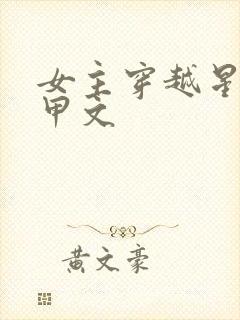 女主穿越星
甲文
黄文豪